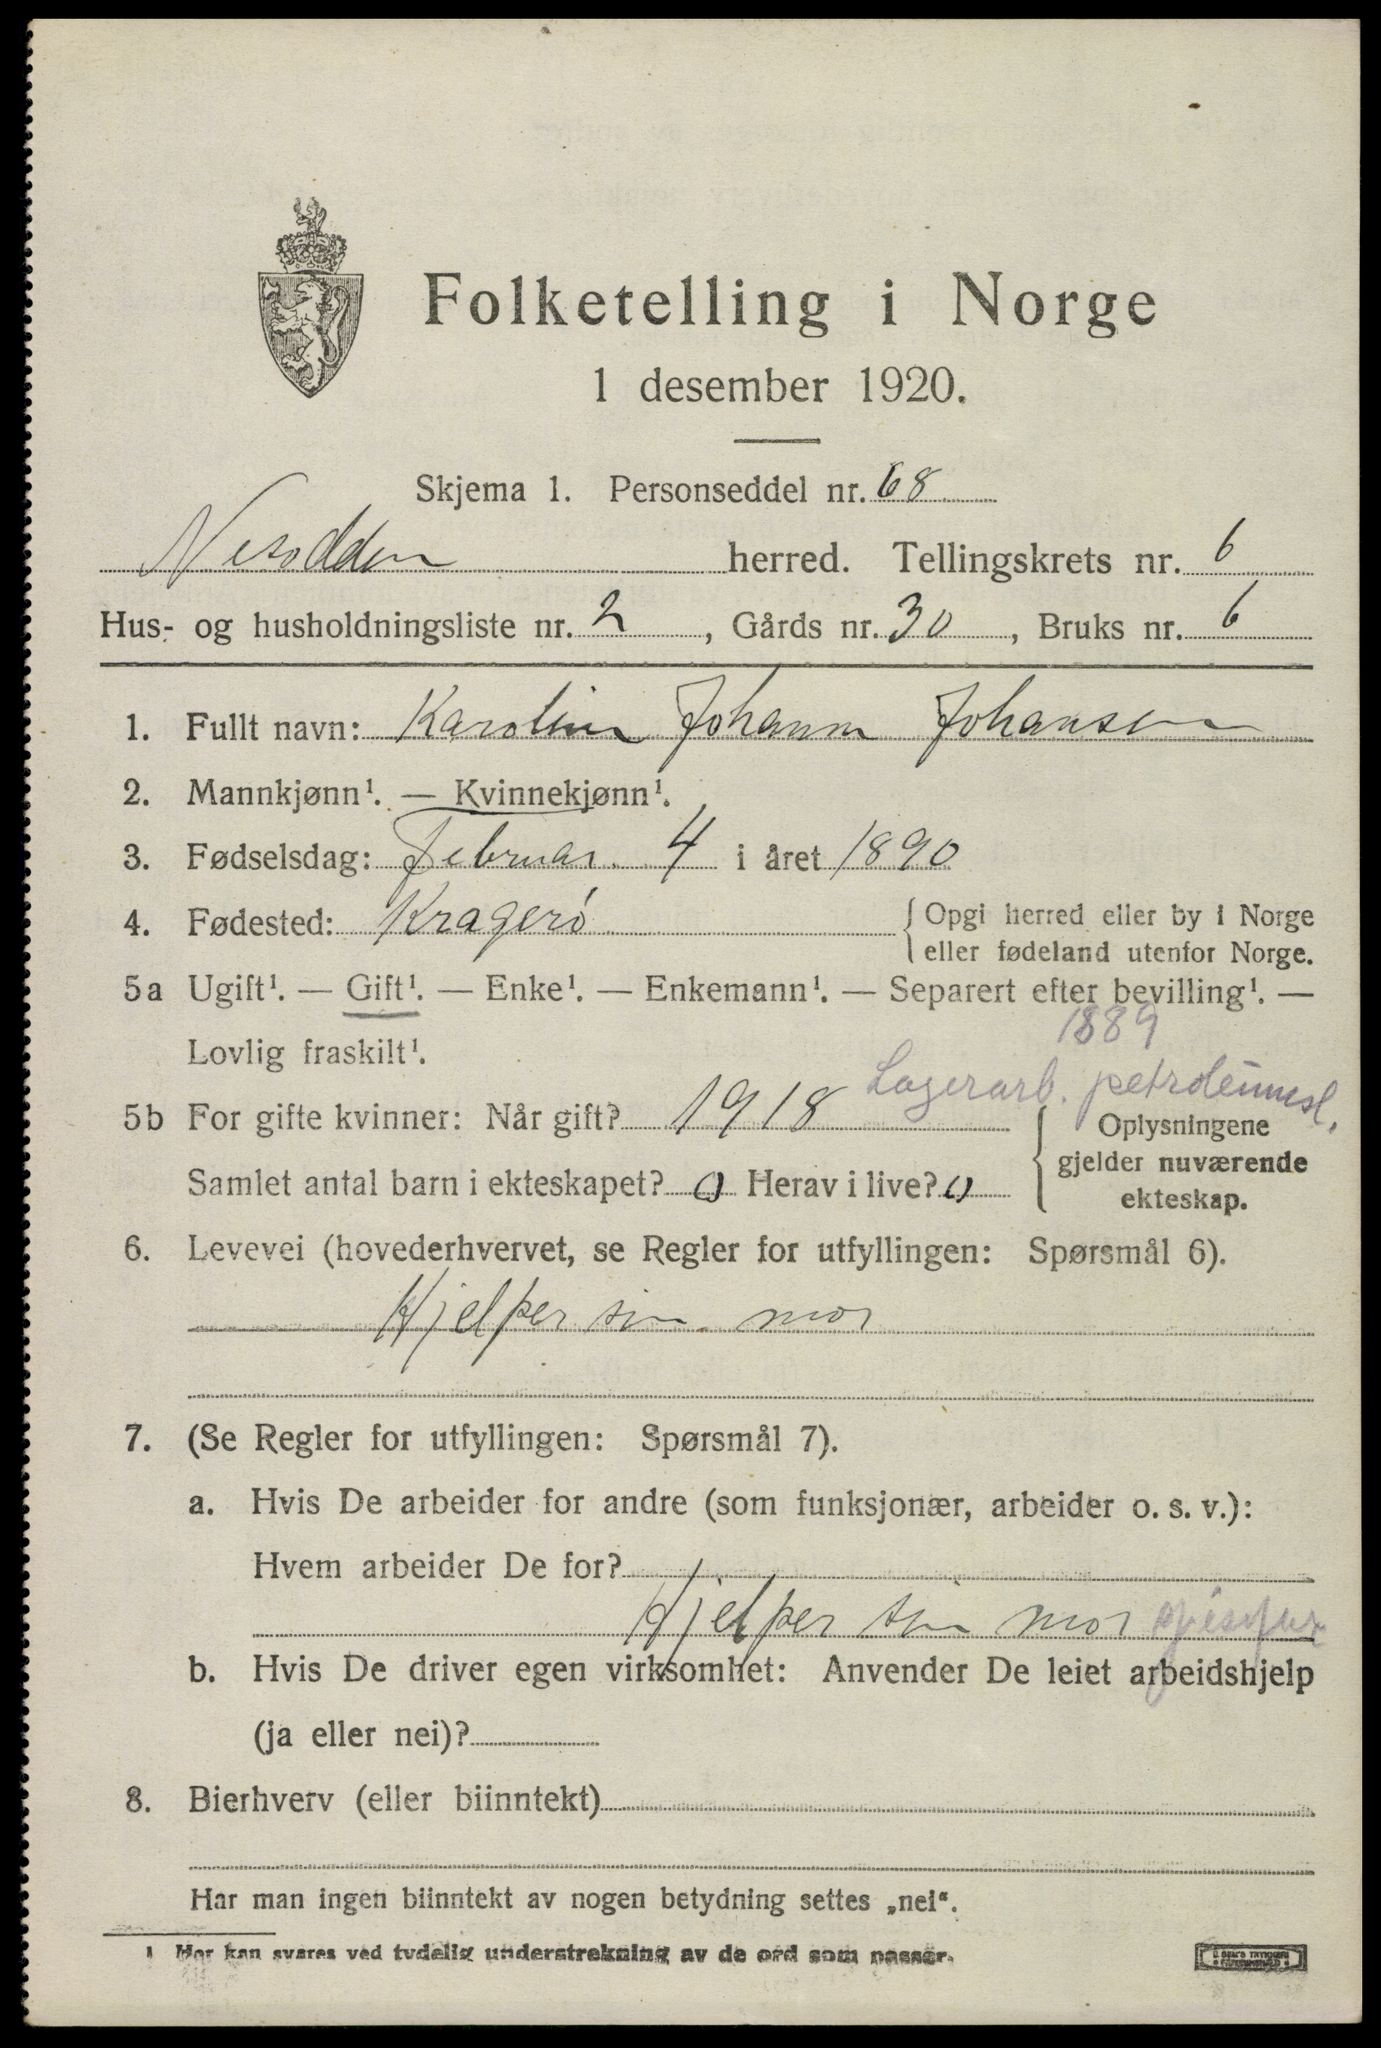 Folketelling i Norge
1 desember 1920.
Skjema 1. Personseddel nr. 68
Nesodden herred. Tellingskrets nr. 6
Hus- og husholdningsliste nr. 2, Gårds nr. 30, Bruks nr. 6
1. Fullt navn: Karoline Johanne Johansen
2. Mannkjønn¹. — Kvinnekjønn¹.
3. Fødselsdag: Februar 4 i året 1890
4. Fødested: Kragerö { Opgi herred eller by i Norge
eller fødeland utenfor Norge.
5a Ugift¹. — Gift¹. — Enke¹. — Enkemann¹. — Separert efter bevilling¹. —
1889
Lovlig fraskilt¹.
Lagerarb. petroleumsl.
5b For gifte kvinner: Når gift? 1918 { Oplysningene
gjelder nuværende
Samlet antal barn i ekteskapet? 0 Herav i live? 0
ekteskap.
6. Levevei (hovederhvervet, se Regler for utfyllingen: Spørsmål 6).
Hjelper sin mor
7. (Se Regler for utfyllingen: Spørsmål 7).
a. Hvis De arbeider for andre (som funksjonær, arbeider o. s. v.):
Hvem arbeider De for?
Hjelper sin mor
b. Hvis De driver egen virksomhet: Anvender De leiet arbeidshjelp
(ja eller nei)?
8. Bierhverv (eller biinntekt)
Har man ingen biinntekt av nogen betydning settes „nei“.
1 Her kan svares ved tydelig understrekning av de ord som passer.